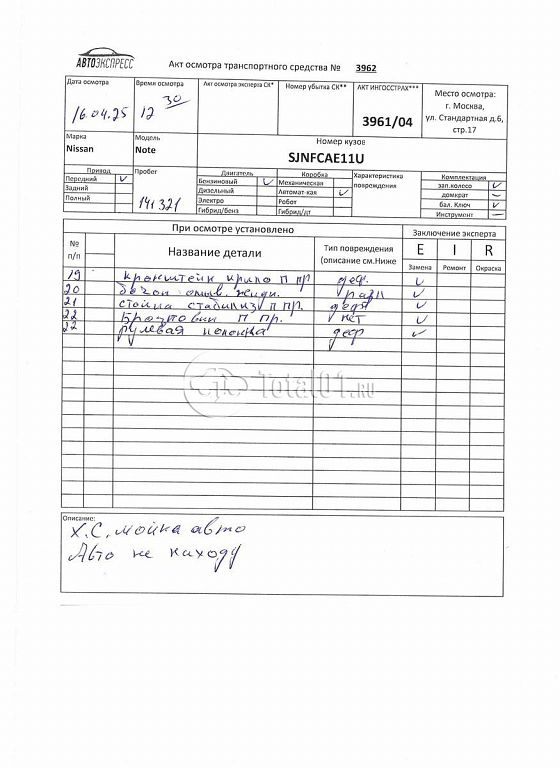 АВТОЭКСПРЕСС
Акт осмотра транспортного средства № 3962
Дата осмотра
16.04.25
Время осмотра
12 30
Акт осмотра эксперта СК*
Номер убытка СК**
АКТ ИНГОССТРАХ***
3961/04
Место осмотра:
г. Москва,
ул. Стандартная д.6,
стр.17
Марка
Nissan
Модель
Note
Номер кузов
SJNFCAE11U
Привод
Передний
Задний
Полный
Пробег
141321
Двигатель
Бензиновый
Дизельный
Электро
Гибрид/Бенз
Коробка
Механическая
Автомат-кая
Робот
Гибрид/дт
Характеристика
повреждения
Комплектация
зап.колесо
домкрат
бал. Ключ
Инструмент
При осмотре установлено
Заключение эксперта
№
п/п
Название детали
Тип повреждения
(описание см.Ниже
E I R
Замена Ремонт Окраска
19 кронштейн крыло П пр деф.
20 бачок омыв. жидк. разл
21 стойка стабилиз П пр. деф
22 Брызговик П пр. нет
22 рулевая колонка деф
Total01.ru
Описание:
Х.С, мойка авто
Авто не на ходу